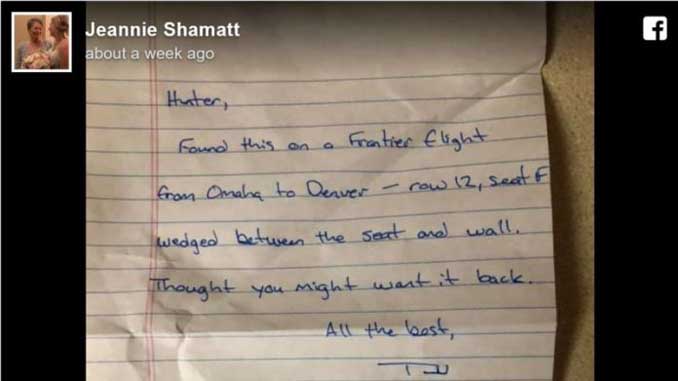 Jeannie Shamatt
about a week ago
f
Hunter,
Found this on a Frontier flight
from Omaha to Denver – row 12, seat F
wedged between the seat and wall.
Thought you might want it back.
All the best,